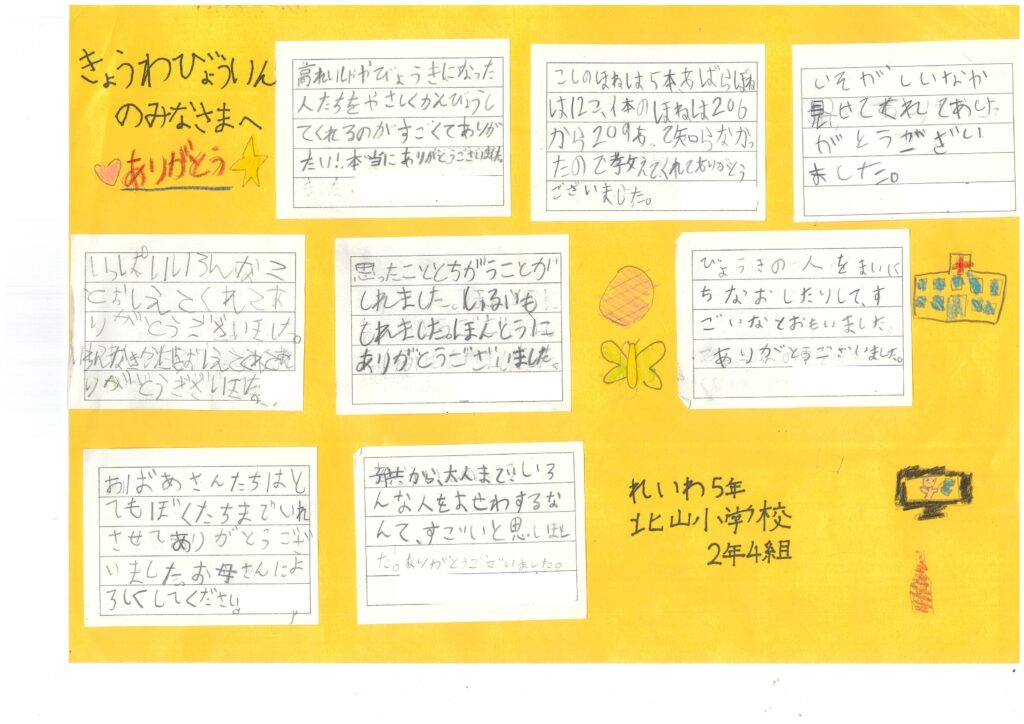 きょうわびょういん
のみなさまへ
ありがとう
高れいしややびょうきになった
人たちをやさしくかんびょうし
てくれるのがすごくてありが
たい!、本当にありがとうござい
ました。
こしのほねは5本あばらぼね
は12こ、1本のほねは206
から209あって知らなかっ
たので教えてくれてありがとう
ございました。
いそがしいなか
見せてくれてあり
がとうござい
ました。
いっぱいいろんなこ
とおしえてくれてあ
りがとうございました。
おしえてくれてあ
りがとうございました。
思ったこととちがうことが
しれました。しゅるいも
しれました。ほんとうに
ありがとうございました。
びょうきの人をまいに
ちなおしたりして、す
ごいなとおもいました。
ありがとうございました。
おばあさんたちはと
てもぼくたちまでいれ
させてありがとうござ
いました。お母さんによ
ろしくしてください。
から、大人までいろ
んな人をおせわするな
んて、すごいと思いまし
た。ありがとうございました。
れいわ5年
北山小学校
2年4組